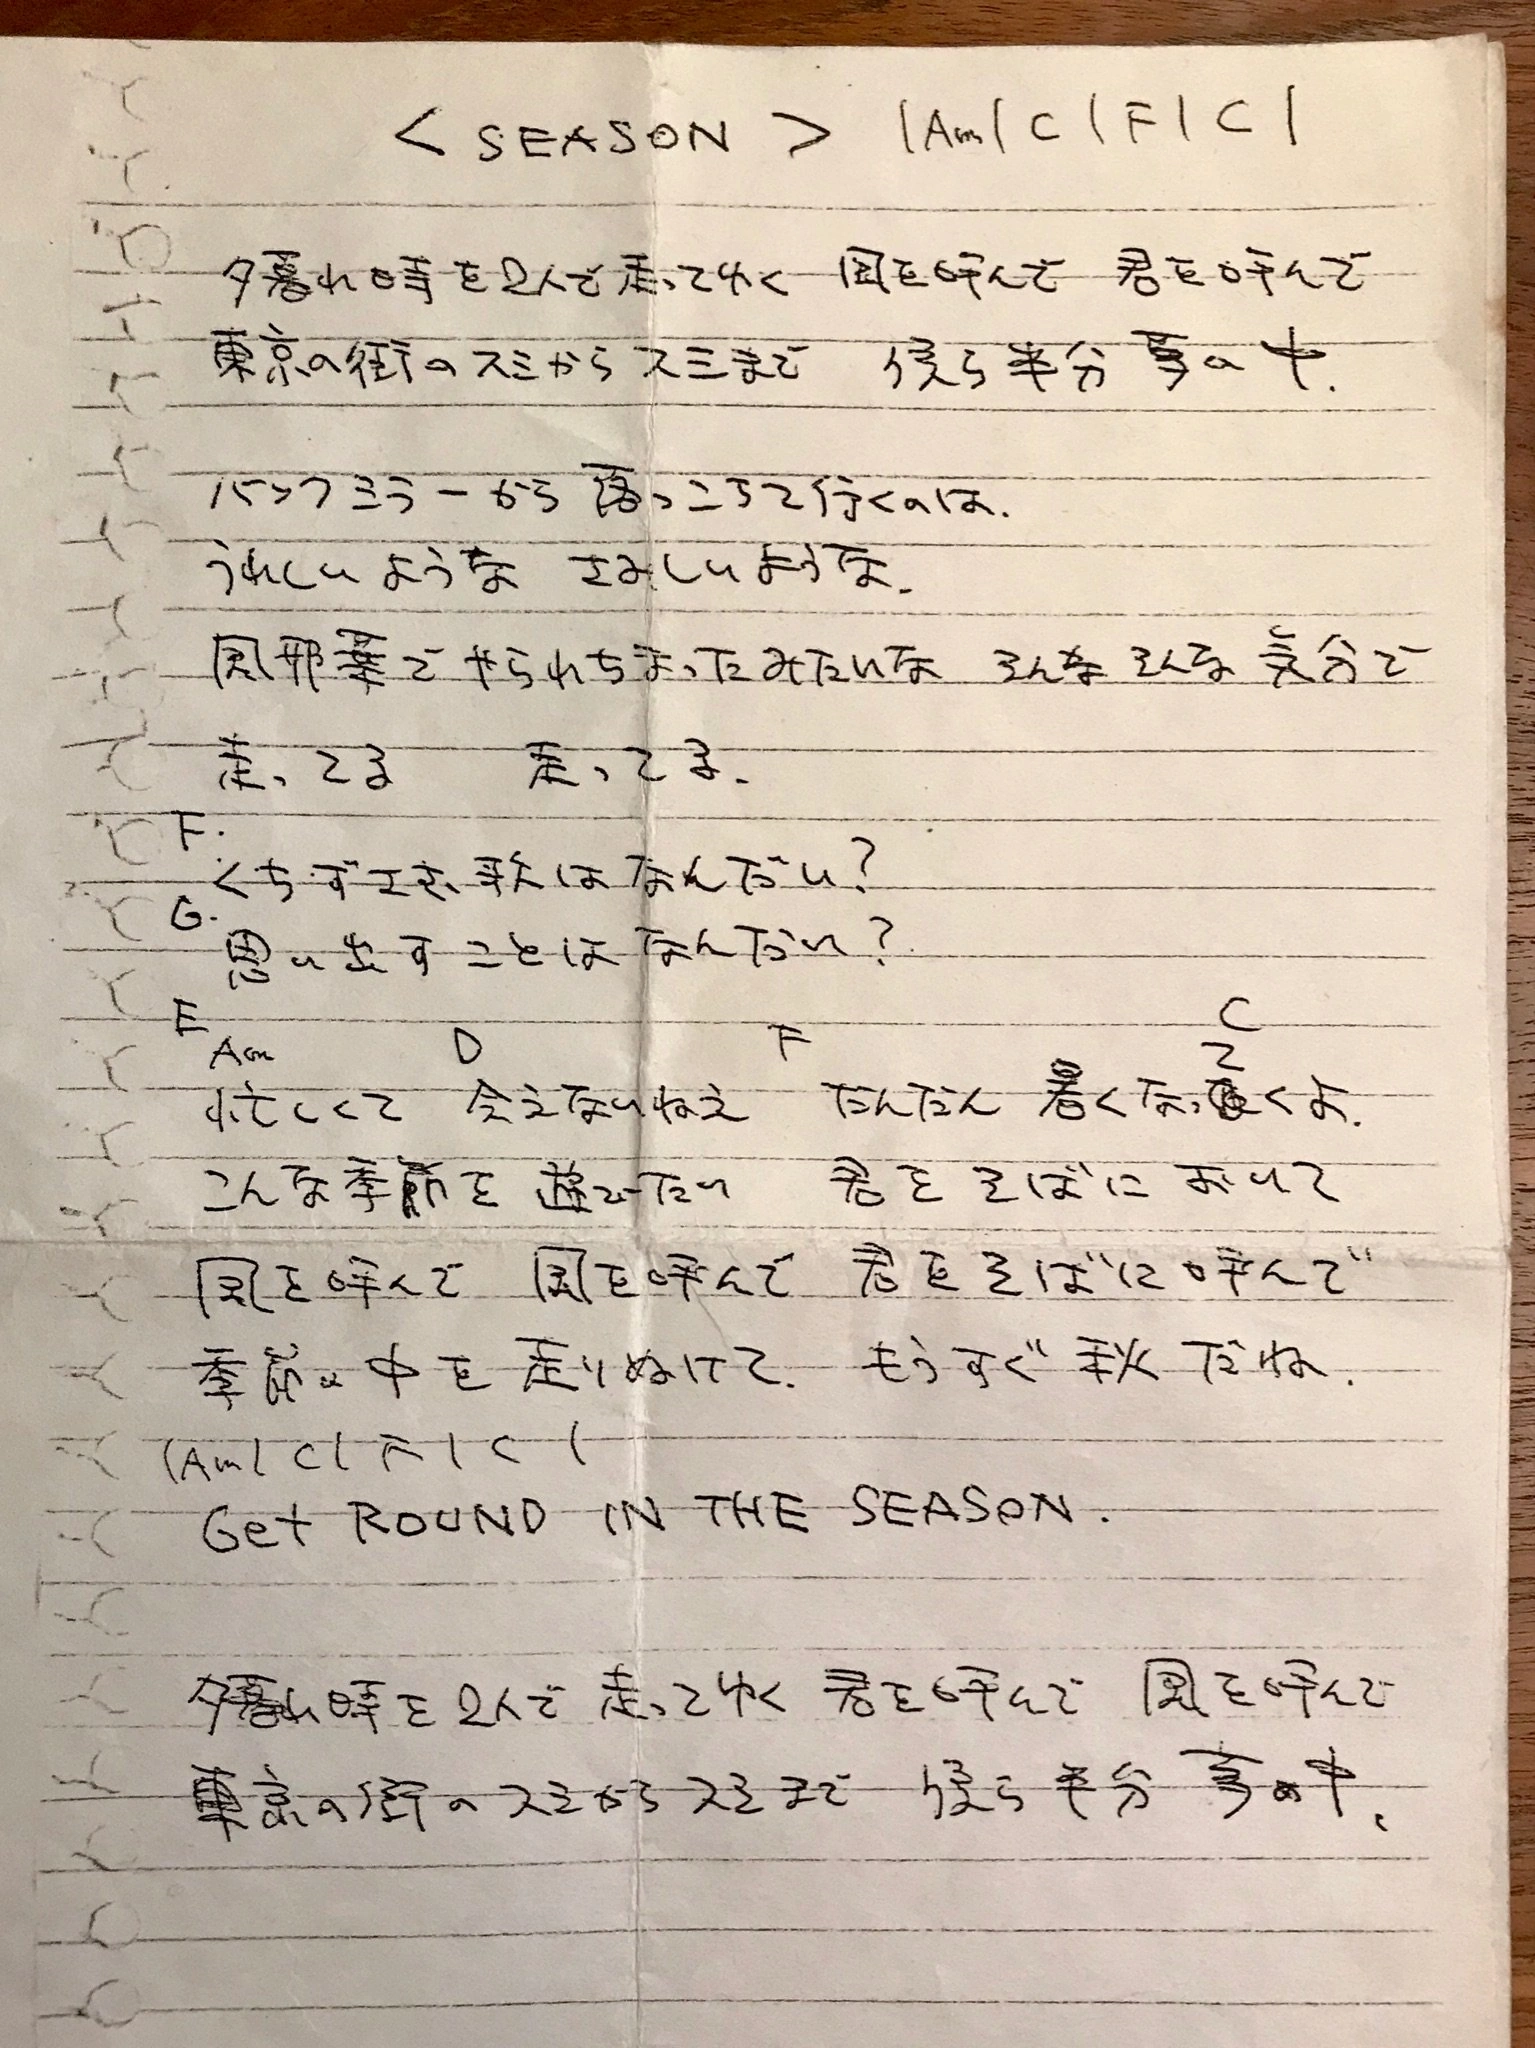 <SEASON> |Am| C | F | C |
夕暮れ時を2人で走ってゆく 風を呼んで 君を呼んで
東京の街のスミからスミまで 僕ら半分 夢の中.
バックミラーから 落っこちて行くのは.
うれしいような さみしいような.
風邪薬で やられちまったみたいな そんな そんな 気分で
走ってる 走ってる.
F.
くちずさむ 歌は なんだい?
G.
思い出すことは なんだい?
E
Am D F C
忙しくて 会えないねえ だんだん 暑くなってくよ.
こんな季節を 遊びたい 君を そばに おいて
風を呼んで 風を呼んで 君を そばに 呼んで
季節の中を 走りぬけて. もうすぐ 秋だね.
|Am| C | F | C |
Get ROUND IN THE SEASON.
夕暮れ時を2人で 走ってゆく 君を呼んで 風を呼んで
東京の街の スミから スミまで 僕ら 半分 夢の中.